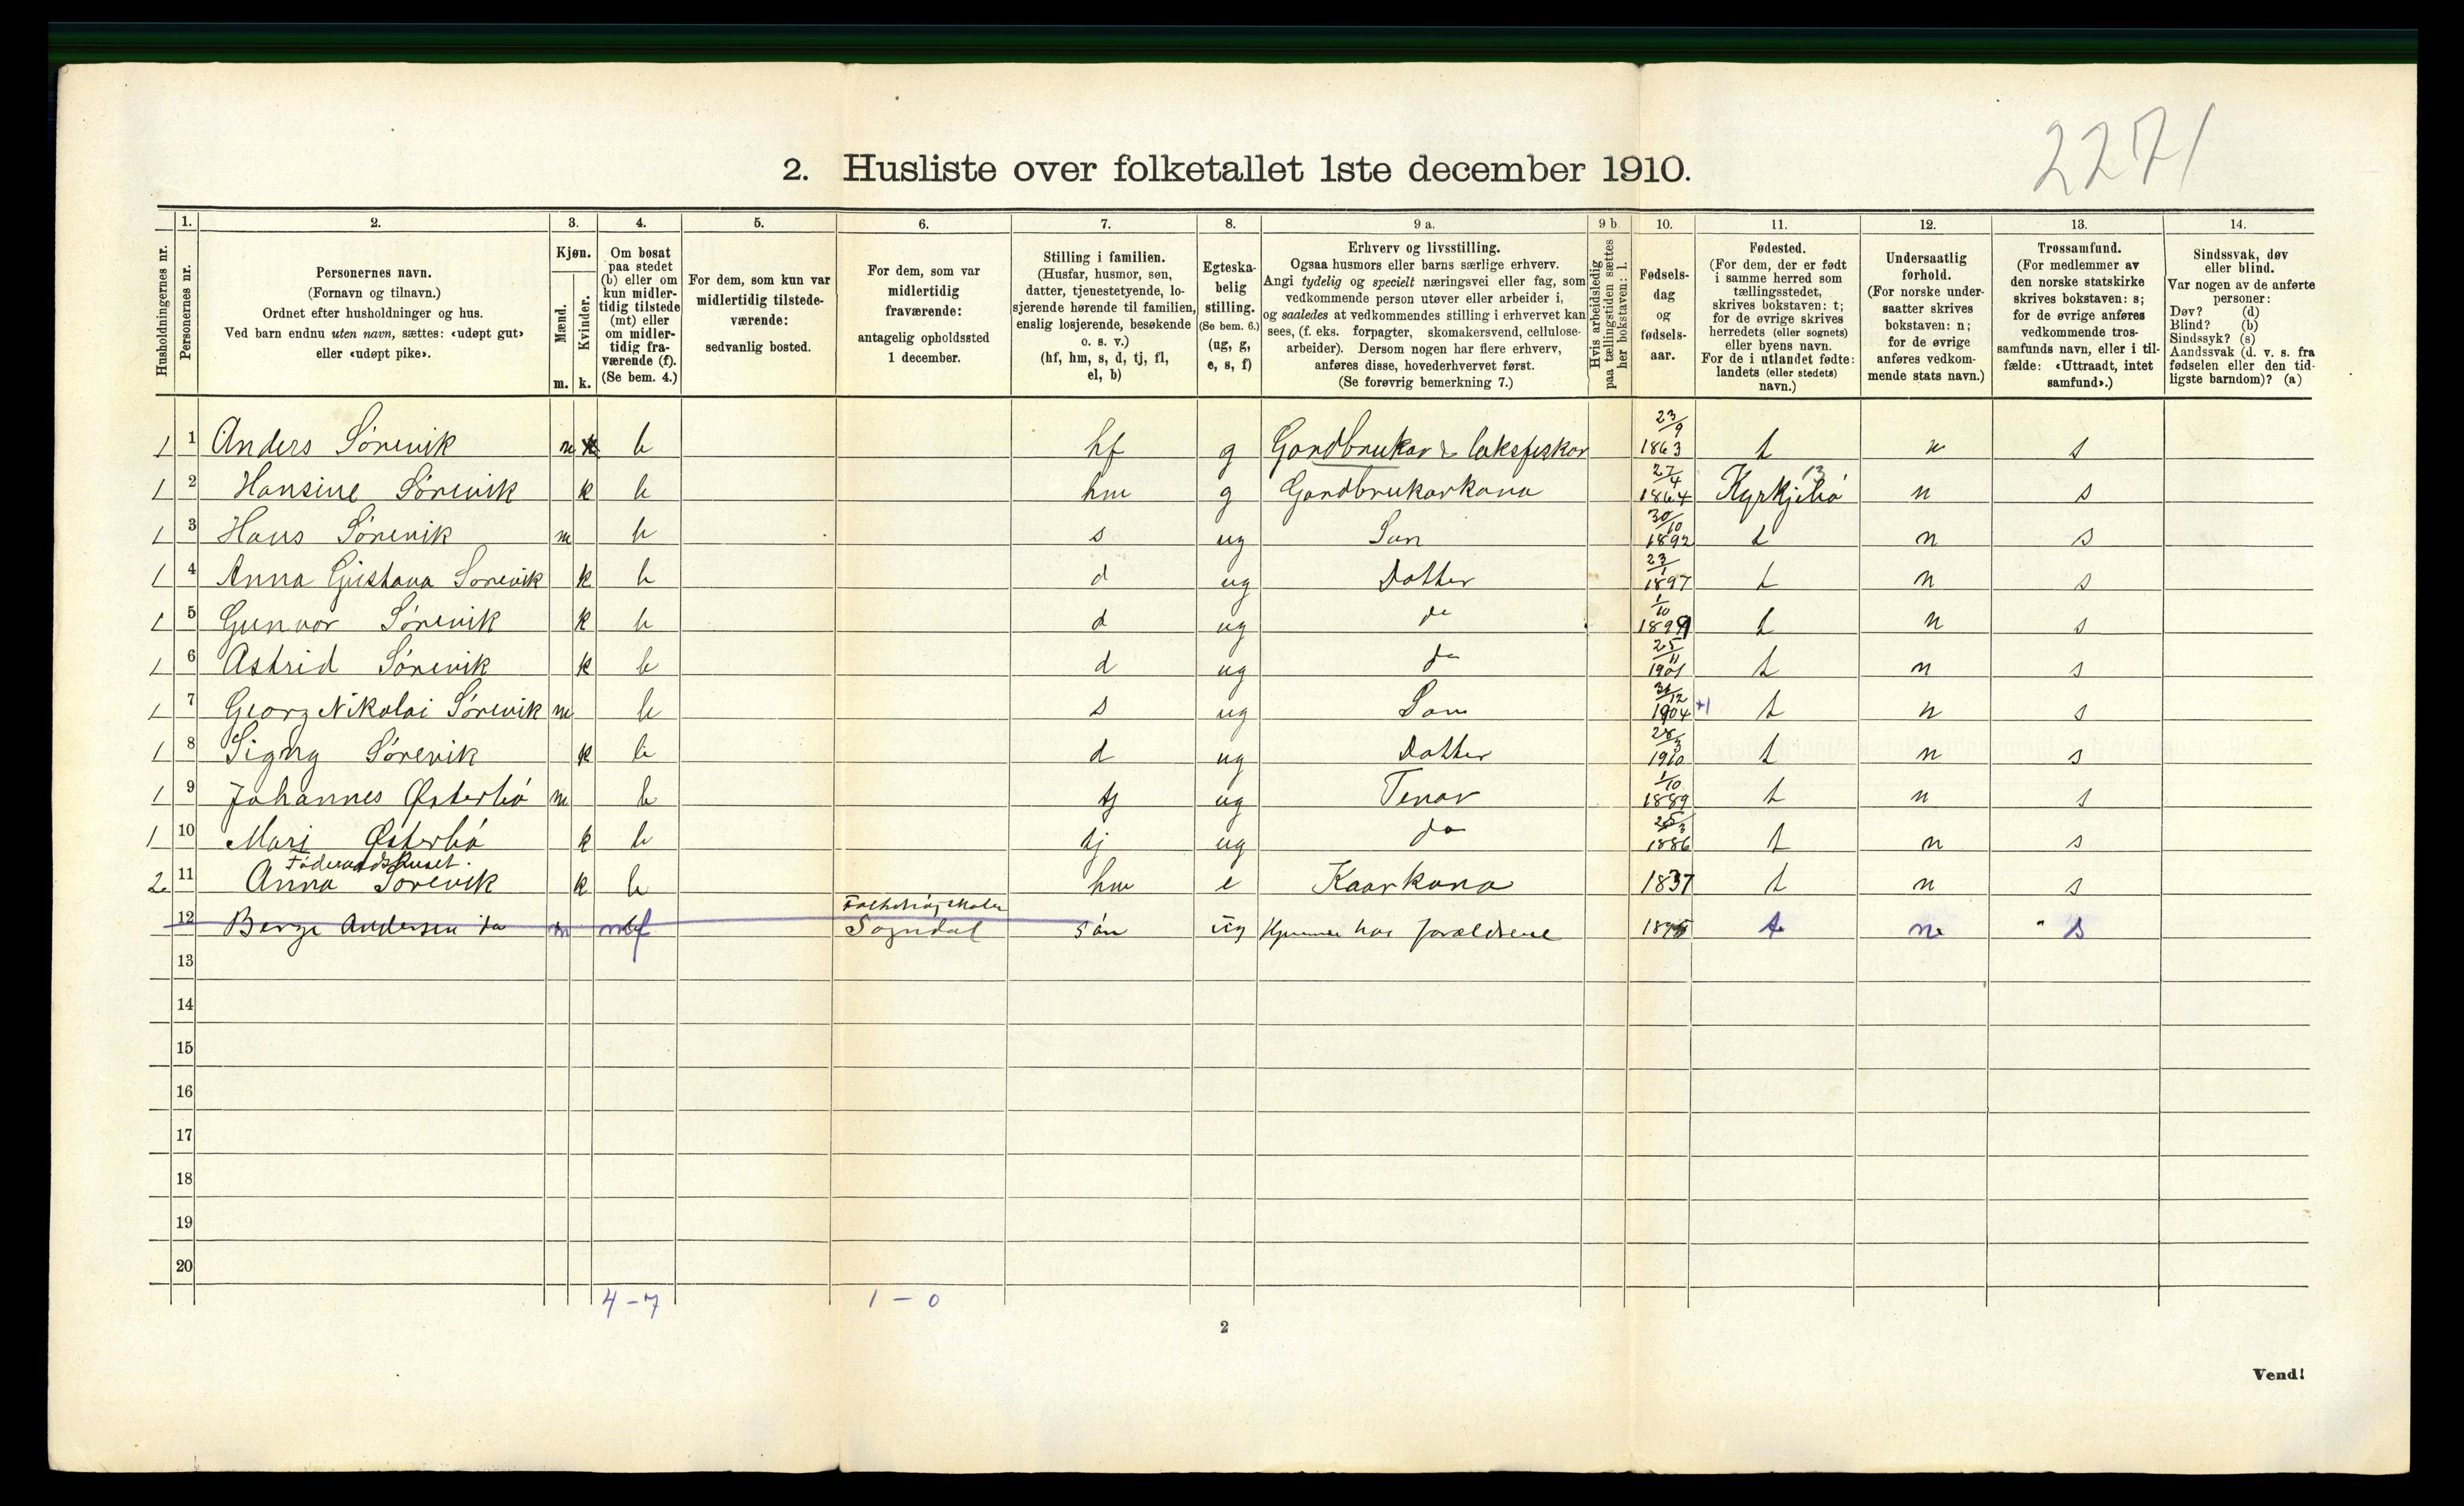 2271
2. Husliste over folketallet 1ste december 1910.
1. 2. 3. 4. 5. 6. 7. 8. 9 a. 9 b. 10. 11. 12. 13. 14.
Husholdningernes nr.
Personernes nr.
Personernes navn.
(Fornavn og tilnavn.)
Ordnet efter husholdninger og hus.
Ved barn endnu uten navn, sættes: «udøpt gut»
eller «udøpt pike».
Kjøn.
Mænd.
Kvinder.
m. k.
Om bosat
paa stedet
(b) eller om
kun midler-
tidig tilstede
(mt) eller
om midler-
tidig fra-
værende (f).
(Se bem. 4.)
For dem, som kun var
midlertidig tilstede-
værende:
sedvanlig bosted.
For dem, som var
midlertidig
fraværende:
antagelig opholdssted
1 december.
Stilling i familien.
(Husfar, husmor, søn,
datter, tjenestetyende, lo-
sjerende hørende til familien,
enslig losjerende, besøkende
o. s. v.)
(hf, hm, s, d, tj, fl,
el, b)
Egteska-
belig
stilling.
(Se bem. 6.)
(ug, g,
e, s, f)
Erhverv og livsstilling.
Ogsaa husmors eller barns særlige erhverv.
Angi tydelig og specielt næringsvei eller fag, som
vedkommende person utøver eller arbeider i,
og saaledes at vedkommendes stilling i erhvervet kan
sees, (f. eks. forpagter, skomakersvend, cellulose-
arbeider). Dersom nogen har flere erhverv,
anføres disse, hovederhvervet først.
(Se forøvrig bemerkning 7.)
Hvis arbeidsledig
paa tællingstiden sættes
her bokstaven: l.
Fødsels-
dag
og
fødsels-
aar.
Fødested.
(For dem, der er født
i samme herred som
tællingsstedet,
skrives bokstaven: t;
for de øvrige skrives
herredets (eller sognets)
eller byens navn.
For de i utlandet fødte:
landets (eller stedets)
navn.)
Undersaatlig
forhold.
(For norske under-
saatter skrives
bokstaven: n;
for de øvrige
anføres vedkom-
mende stats navn.)
Trossamfund.
(For medlemmer av
den norske statskirke
skrives bokstaven: s;
for de øvrige anføres
vedkommende tros-
samfunds navn, eller i til-
fælde: «Uttraadt, intet
samfund».)
Sindssvak, døv
eller blind.
Var nogen av de anførte
personer:
Døv? (d)
Blind? (b)
Sindssyk? (s)
Aandssvak (d. v. s. fra
fødselen eller den tid-
ligste barndom)? (a)
1 1 Anders Sørevik m k b hf g Gardbrukar & laksfiskar 23/9 1863 t n s
1 2 Hansine Sørevik k b hm g Gardbrukarkona 27/4 1864 Kyrkjebø 13 n s
1 3 Hans Sørevik m b s ug Son 30/10 1892 t n s
1 4 Anna Gustava Sørevik k b d ug Dotter 23/1 1897 t n s
1 5 Gunvor Sørevik k b d ug do 1/10 1899 t n s
1 6 Astrid Sørevik k b d ug do 25/11 1901 t n s
1 7 Georg Nikolai Sørevik m b s ug Son 31/12 1904 +1 t n s
1 8 Signy Sørevik k b d ug Dotter 28/3 1910 t n s
1 9 Johannes Østerbø m b tj ug Tenar 1/10 1889 t n s
1 10 Mari Østerbø k b tj ug do 25/3 1886 t n s
Føderaadshuset.
2 11 Anna Sørevik k b hm e Kaarkona 1837 t n s
12 Berge Andersen do m f Sogndal søn ug Hjemme hos forældrene t n " s
13
14
15
16
17
18
19
20
4 - 7 1 - 0
2
Vend!